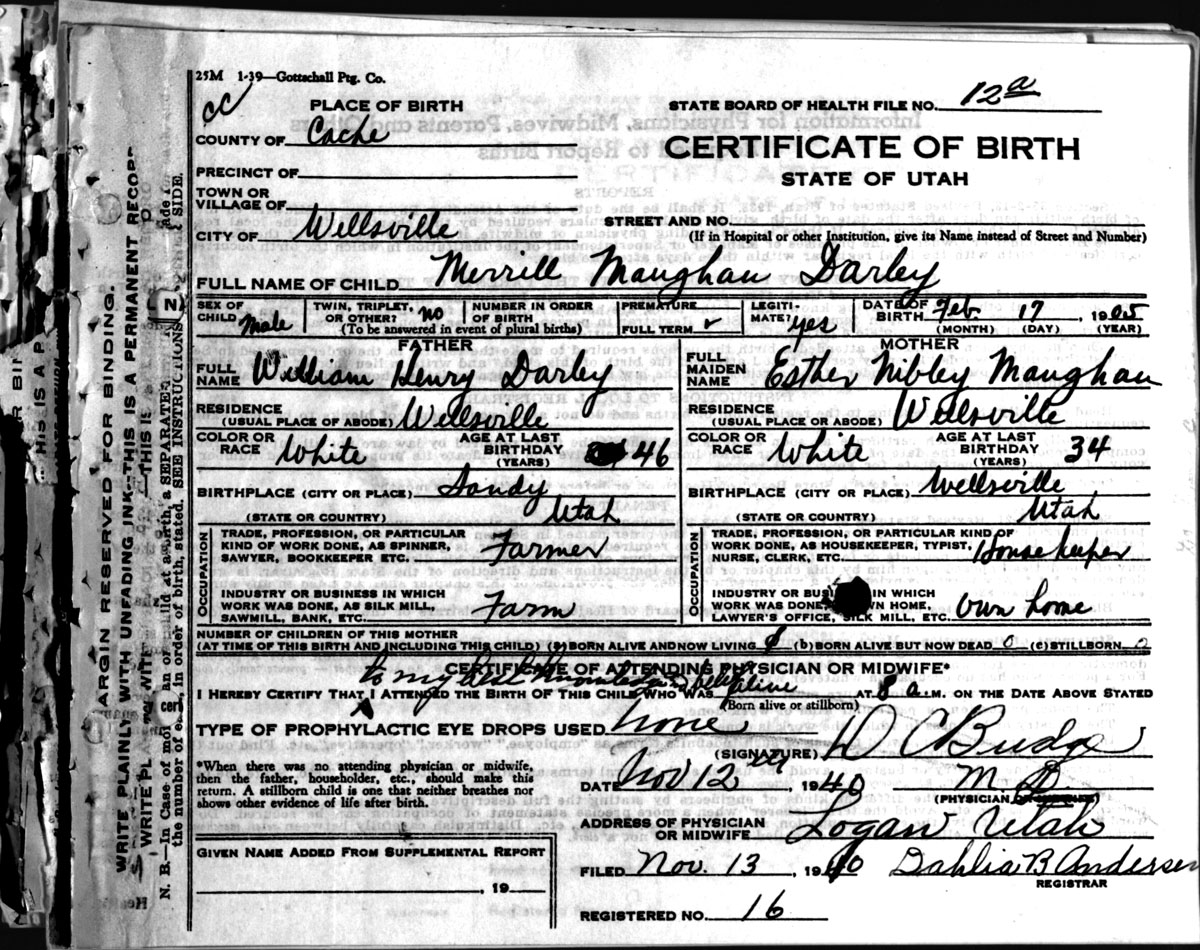 25M 1-39—Gottschall Ptg. Co.
CC
PLACE OF BIRTH
STATE BOARD OF HEALTH FILE NO. 12a
COUNTY OF Cache
CERTIFICATE OF BIRTH
PRECINCT OF
STATE OF UTAH
TOWN OR
VILLAGE OF
CITY OF Wellsville
STREET AND NO.
(If in Hospital or other Institution, give its Name instead of Street and Number)
FULL NAME OF CHILD Merrill Maughan Darley
SEX OF CHILD Male
TWIN, TRIPLET, OR OTHER? no
NUMBER IN ORDER OF BIRTH
(To be answered in event of plural births)
PREMATURE
FULL TERM ✓
LEGITI-MATE? yes
DATE OF BIRTH Feb. 17, 1905
(MONTH) (DAY) (YEAR)
FATHER
FULL NAME William Henry Darley
RESIDENCE
(USUAL PLACE OF ABODE) Wellsville
COLOR OR RACE White
AGE AT LAST BIRTHDAY (YEARS) 46
BIRTHPLACE (CITY OR PLACE) Sandy
(STATE OR COUNTRY) Utah
OCCUPATION
TRADE, PROFESSION, OR PARTICULAR
KIND OF WORK DONE, AS SPINNER,
SAWYER, BOOKKEEPER ETC. Farmer
INDUSTRY OR BUSINESS IN WHICH
WORK WAS DONE, AS SILK MILL,
SAWMILL, BANK, ETC. Farm
MOTHER
FULL MAIDEN NAME Esther Nibley Maughan
RESIDENCE
(USUAL PLACE OR ABODE) Wellsville
COLOR OR RACE White
AGE AT LAST BIRTHDAY (YEARS) 34
BIRTHPLACE (CITY OR PLACE) Wellsville
(STATE OR COUNTRY) Utah
OCCUPATION
TRADE, PROFESSION, OR PARTICULAR KIND OF
WORK DONE, AS HOUSEKEEPER, TYPIST,
NURSE, CLERK, ETC. Housekeeper
INDUSTRY OR IN WHICH
WORK WAS DONE, HOME,
LAWYER'S OFFICE, SILK MILL, ETC. Own home
NUMBER OF CHILDREN OF THIS MOTHER
(AT TIME OF THIS BIRTH AND INCLUDING THIS CHILD) (a) BORN ALIVE AND NOW LIVING (b) BORN ALIVE BUT NOW DEAD 0 (c) STILLBORN 0
CERTIFICATE OF ATTENDING PHYSICIAN OR MIDWIFE*
to my best knowledge & belief
I HEREBY CERTIFY THAT I ATTENDED THE BIRTH OF THIS CHILD WHO WAS alive AT 8 a. M. ON THE DATE ABOVE STATED
(Born alive or stillborn)
TYPE OF PROPHYLACTIC EYE DROPS USED none
(SIGNATURE) D C Budge
*When there was no attending physician or midwife,
then the father, householder, etc., should make this
return. A stillborn child is one that neither breathes nor
shows other evidence of life after birth.
DATE Nov 12, 1940
M D
(PHYSICIAN
ADDRESS OF PHYSICIAN
OR MIDWIFE Logan Utah
GIVEN NAME ADDED FROM SUPPLEMENTAL REPORT
, 19
FILED Nov. 13, 1940 Dahlia B. Andersen
REGISTRAR
REGISTERED NO. 16
ARGIN RESERVED FOR BINDING.
WRITE PLAINLY WITH UNFADING INK—THIS IS A PERMANENT RECOR